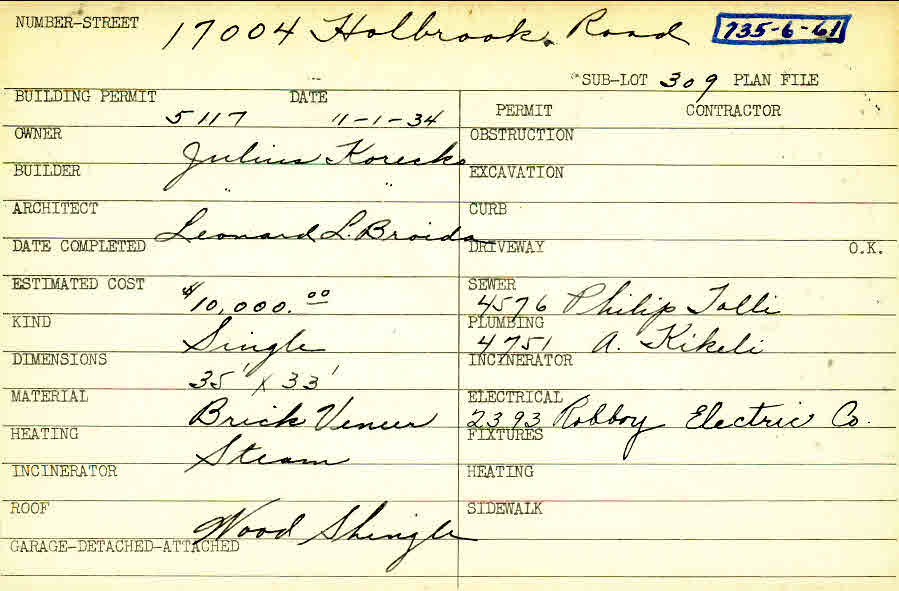 NUMBER-STREET 17004 Holbrook Road 735-6-61
SUB-LOT 309 PLAN FILE
BUILDING PERMIT DATE PERMIT CONTRACTOR
5117 11-1-34
OWNER Julius Korecko OBSTRUCTION
BUILDER " " EXCAVATION
ARCHITECT Leonard L. Broida CURB
DATE COMPLETED DRIVEWAY O.K.
ESTIMATED COST $10,000.00 SEWER 4576 Philip Tolli
KIND Single PLUMBING 4751 A. Kikeli
DIMENSIONS 35' x 33' INCINERATOR
MATERIAL Brick Veneer ELECTRICAL 2393 Robboy Electric Co.
HEATING Steam FIXTURES
INCINERATOR HEATING
ROOF Wood Shingle SIDEWALK
GARAGE-DETACHED-ATTACHED